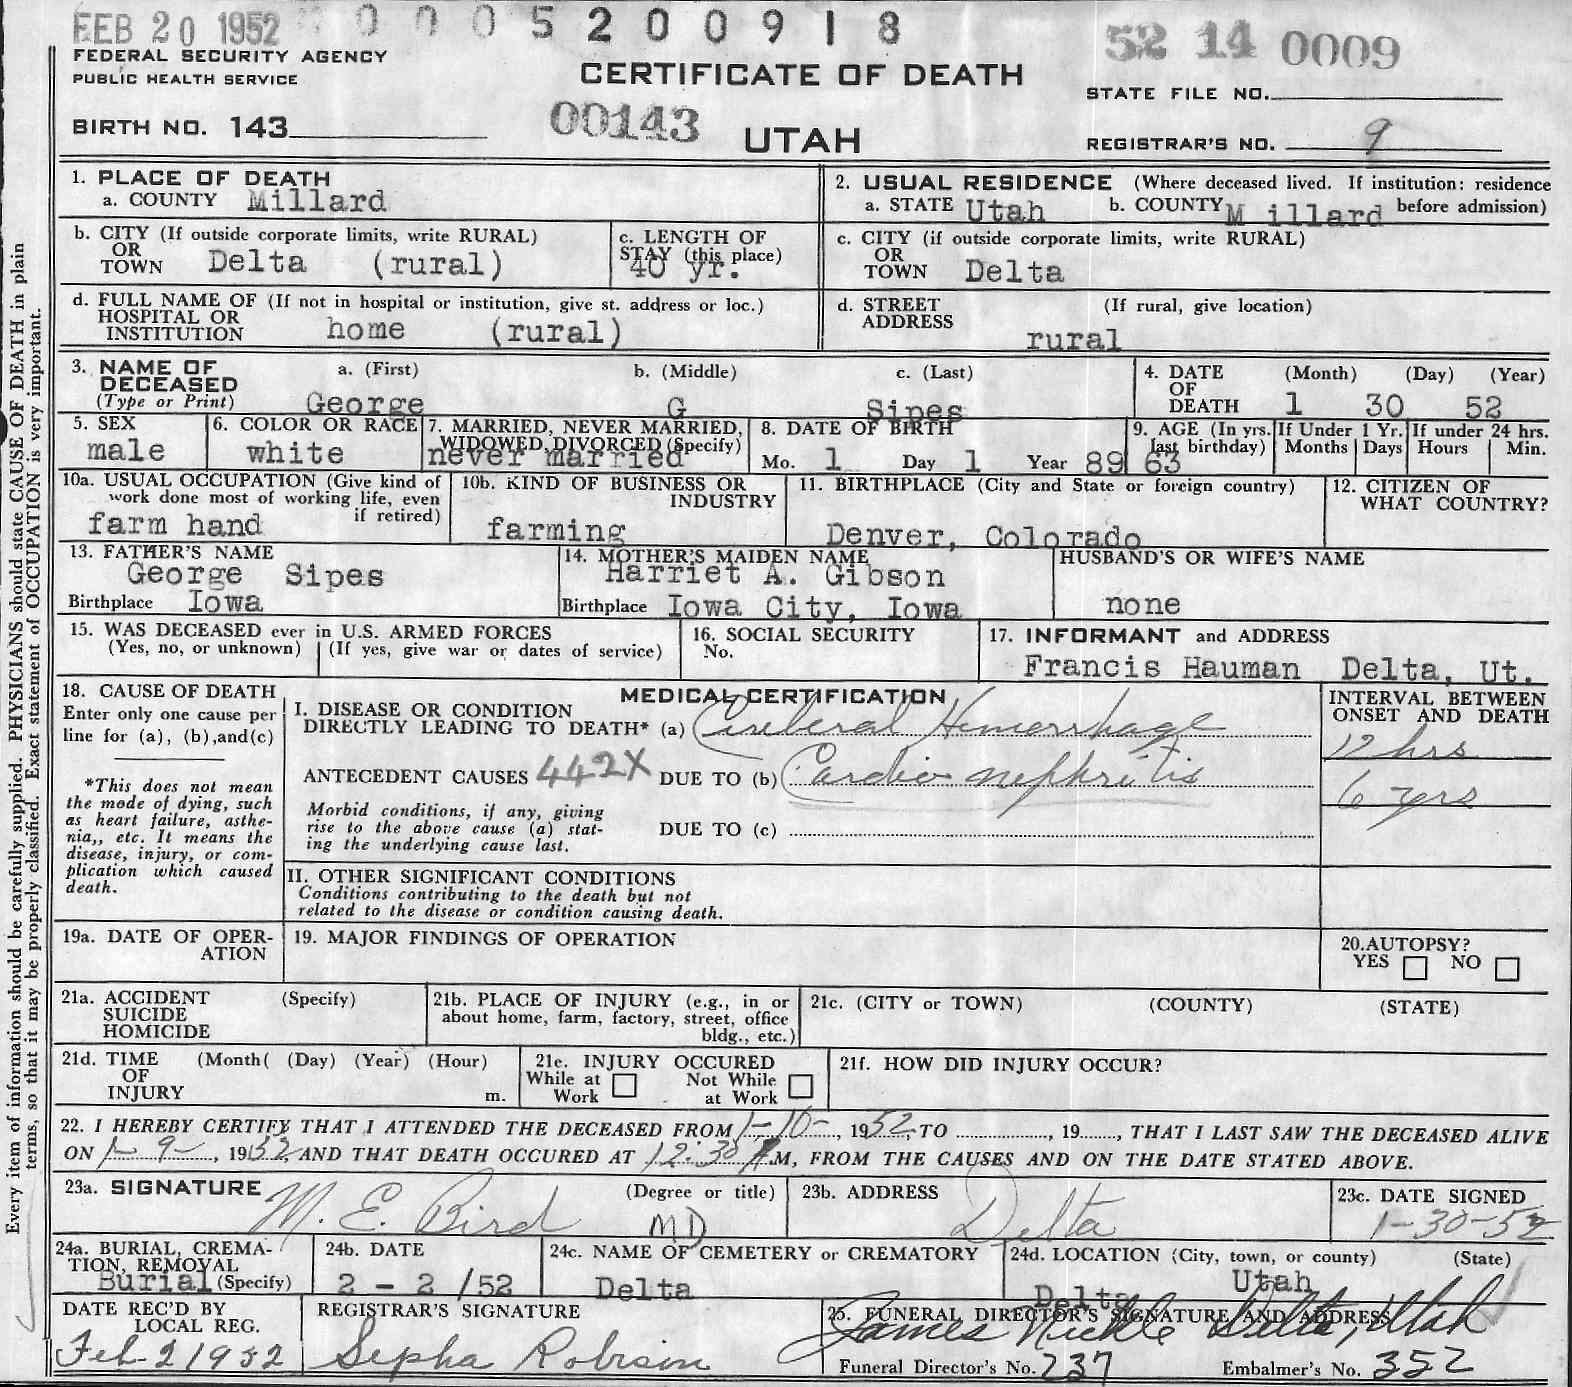 FEB 20 1952 0 0 0 5 2 0 0 9 1 8
52 14 0009
FEDERAL SECURITY AGENCY
PUBLIC HEALTH SERVICE
CERTIFICATE OF DEATH
STATE FILE NO.
BIRTH NO. 143
00143
UTAH
REGISTRAR'S NO. 9
1. PLACE OF DEATH
a. COUNTY Millard
2. USUAL RESIDENCE (Where deceased lived. If institution: residence
a. STATE Utah b. COUNTY M illard before admission)
b. CITY (If outside corporate limits, write RURAL)
OR
TOWN Delta (rural)
c. LENGTH OF
STAY (this place)
40 yr.
c. CITY (if outside corporate limits, write RURAL)
OR
TOWN Delta
d. FULL NAME OF (If not in hospital or institution, give st. address or loc.)
HOSPITAL OR
INSTITUTION home (rural)
d. STREET (If rural, give location)
ADDRESS
rural
3. NAME OF a. (First) b. (Middle) c. (Last)
DECEASED
(Type or Print) George G Sipes
4. DATE (Month) (Day) (Year)
OF
DEATH 1 30 52
5. SEX
male
6. COLOR OR RACE
white
7. MARRIED, NEVER MARRIED,
WIDOWED, DIVORCED (Specify)
never married
8. DATE OF BIRTH
Mo. 1 Day 1 Year 89
9. AGE (In yrs.
last birthday)
63
If Under 1 Yr.
Months Days
If under 24 hrs.
Hours Min.
10a. USUAL OCCUPATION (Give kind of
work done most of working life, even
if retired)
farm hand
10b. KIND OF BUSINESS OR
INDUSTRY
farming
11. BIRTHPLACE (City and State or foreign country)
Denver, Colorado
12. CITIZEN OF
WHAT COUNTRY?
13. FATHER'S NAME
George Sipes
Birthplace Iowa
14. MOTHER'S MAIDEN NAME
Harriet A. Gibson
Birthplace Iowa City, Iowa
HUSBAND'S OR WIFE'S NAME
none
15. WAS DECEASED ever in U.S. ARMED FORCES
(Yes, no, or unknown) (If yes, give war or dates of service)
16. SOCIAL SECURITY
No.
17. INFORMANT and ADDRESS
Francis Hauman Delta, Ut.
18. CAUSE OF DEATH
Enter only one cause per
line for (a), (b),and(c)
*This does not mean
the mode of dying, such
as heart failure, asthe-
nia,, etc. It means the
disease, injury, or com-
plication which caused
death.
MEDICAL CERTIFICATION
I. DISEASE OR CONDITION
DIRECTLY LEADING TO DEATH* (a) Cerebral Hemorrhage
ANTECEDENT CAUSES 442X DUE TO (b) Cardio nephritis
Morbid conditions, if any, giving
rise to the above cause (a) stat-
ing the underlying cause last.
DUE TO (c)
INTERVAL BETWEEN
ONSET AND DEATH
12 hrs
6 yrs
II. OTHER SIGNIFICANT CONDITIONS
Conditions contributing to the death but not
related to the disease or condition causing death.
19a. DATE OF OPER-
ATION
19. MAJOR FINDINGS OF OPERATION
20. AUTOPSY?
YES NO
21a. ACCIDENT (Specify)
SUICIDE
HOMICIDE
21b. PLACE OF INJURY (e.g., in or
about home, farm, factory, street, office
bldg., etc.)
21c. (CITY or TOWN) (COUNTY) (STATE)
21d. TIME (Month( (Day) (Year) (Hour)
OF
INJURY m.
21e. INJURY OCCURED
While at Work Not While at Work
21f. HOW DID INJURY OCCUR?
22. I HEREBY CERTIFY THAT I ATTENDED THE DECEASED FROM 1-10-, 1952, TO , 19 , THAT I LAST SAW THE DECEASED ALIVE
ON 1-9-, 1952, AND THAT DEATH OCCURED AT 12:30 AM, FROM THE CAUSES AND ON THE DATE STATED ABOVE.
23a. SIGNATURE M. E. Bird (Degree or title) MD
23b. ADDRESS Delta
23c. DATE SIGNED
1-30-52
24a. BURIAL, CREMA-
TION, REMOVAL
Burial (Specify)
24b. DATE
2 - 2 /52
24c. NAME OF CEMETERY or CREMATORY
Delta
24d. LOCATION (City, town, or county) (State)
Delta Utah
DATE REC'D BY
LOCAL REG.
Feb 2 1952
REGISTRAR'S SIGNATURE
Sepha Robison
25. FUNERAL DIRECTOR'S SIGNATURE AND ADDRESS
James Nickle Delta, Utah
Funeral Director's No. 237 Embalmer's No. 352
Every item of information should be carefully supplied. PHYSICIANS should state CAUSE OF DEATH in plain
terms, so that it may be properly classified. Exact statement of OCCUPATION is very important.